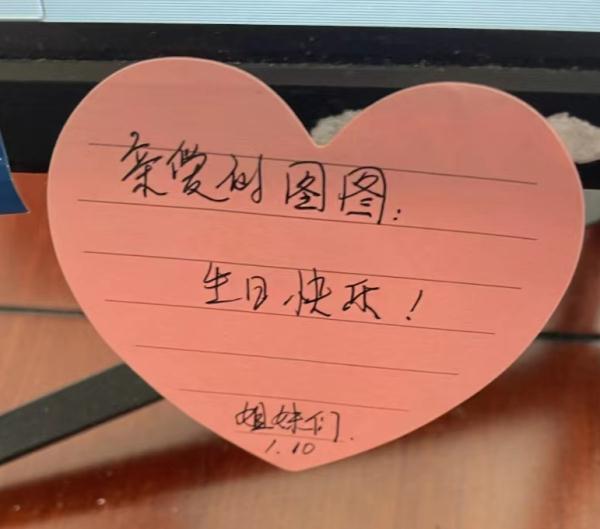 亲爱的图图:
生日快乐!
姐妹们.
1.10